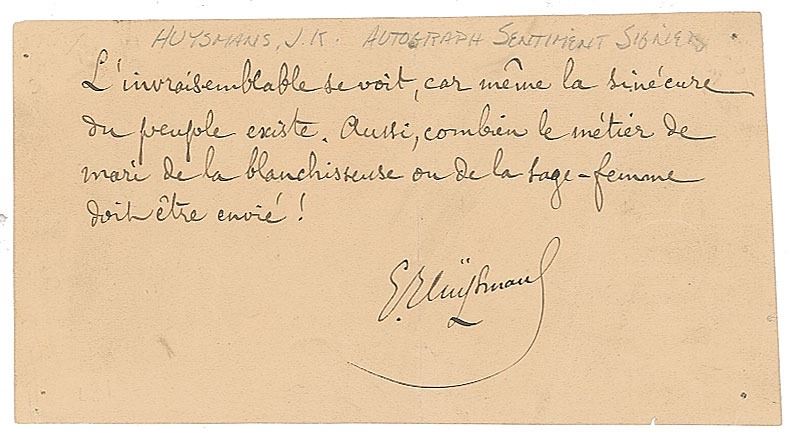 HUYSMANS, J.K. AUTOGRAPH SENTIMENT SIGNED
L'invraisemblable se voit, car même la sinécure
du peuple existe. Aussi, combien le métier de
mari de la blanchisseuse ou de la sage-femme
doit être envié !
G. Huÿsmans